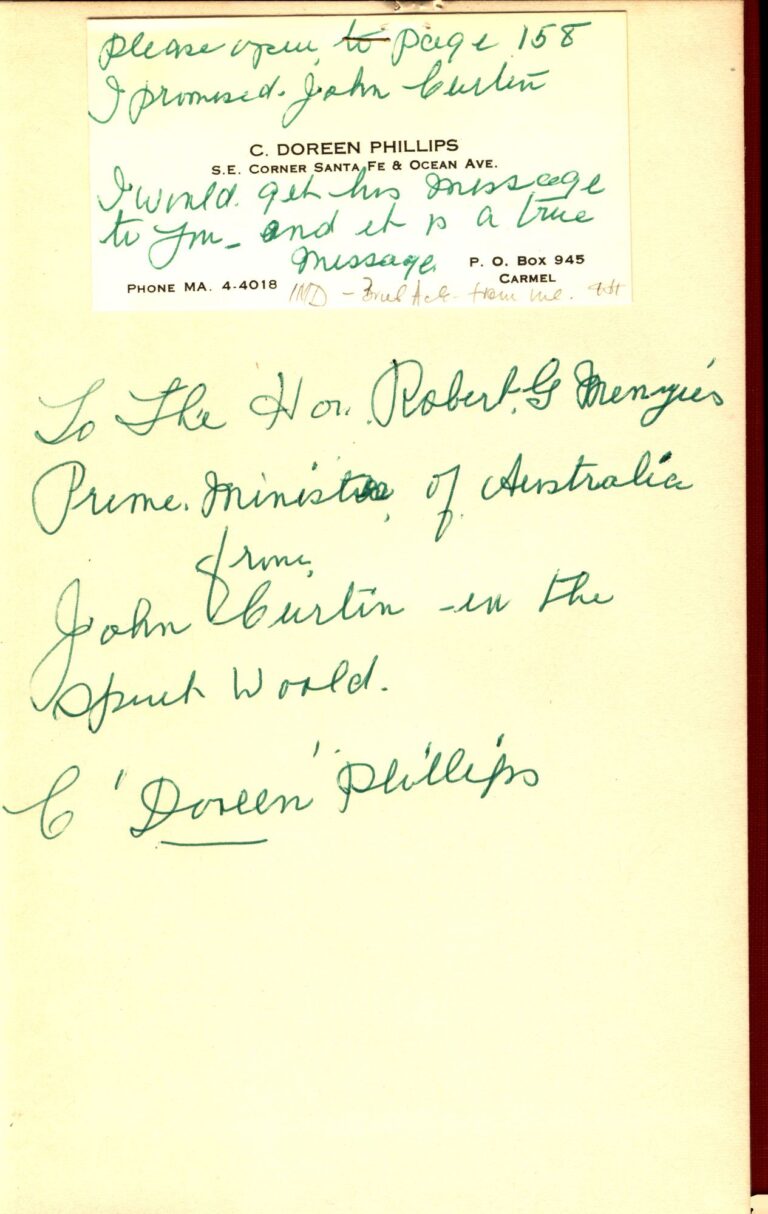 please open to page 158
I promised John Curtin
C. DOREEN PHILLIPS
S.E. CORNER SANTA FE & OCEAN AVE.
I would get his message
to you - and it is a true
message.
P. O. BOX 945
CARMEL
PHONE MA. 4-4018
from me.
To The Hon. Robert. G Menzies
Prime. Minister, of Australia
from,
John Curtin - in the
Spirit World.
C 'Doreen' Phillips